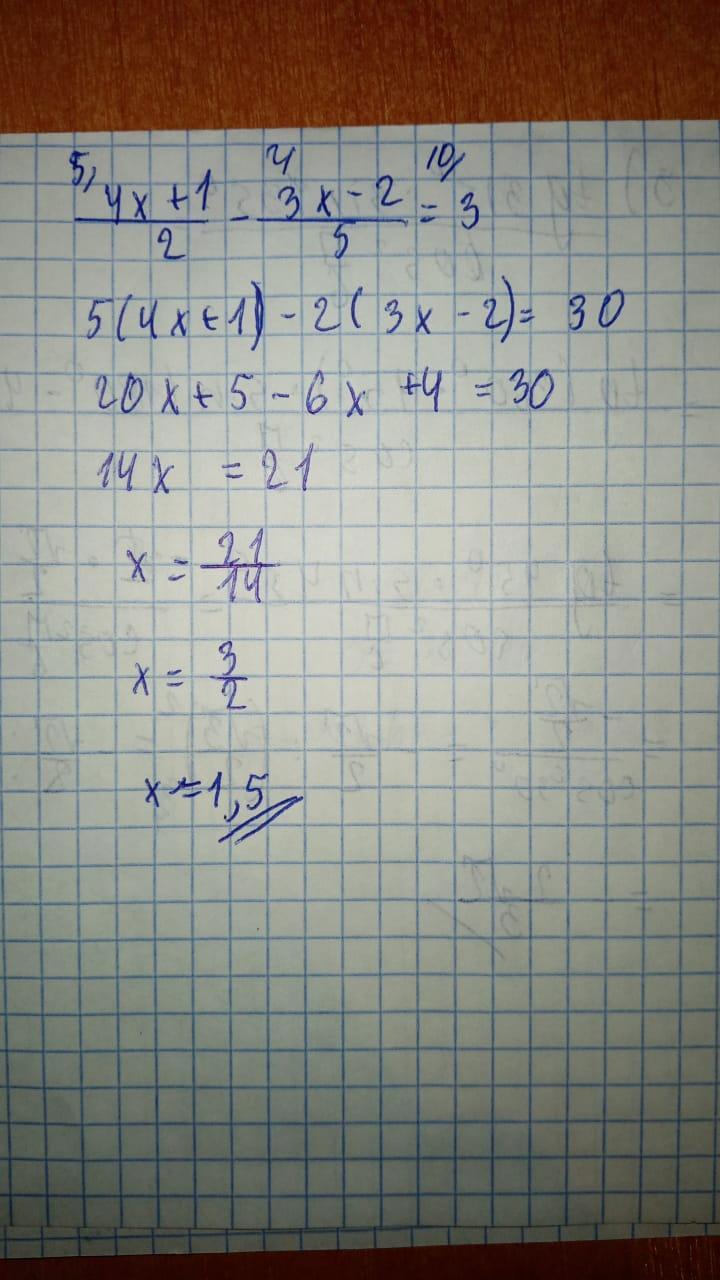 5, 4 10,
4x+1/2 - 3x-2/5 = 3
5(4x+1) - 2(3x-2) = 30
20x+5-6x+4=30
14x = 21
x = 21/14
x = 3/2
x = 1,5